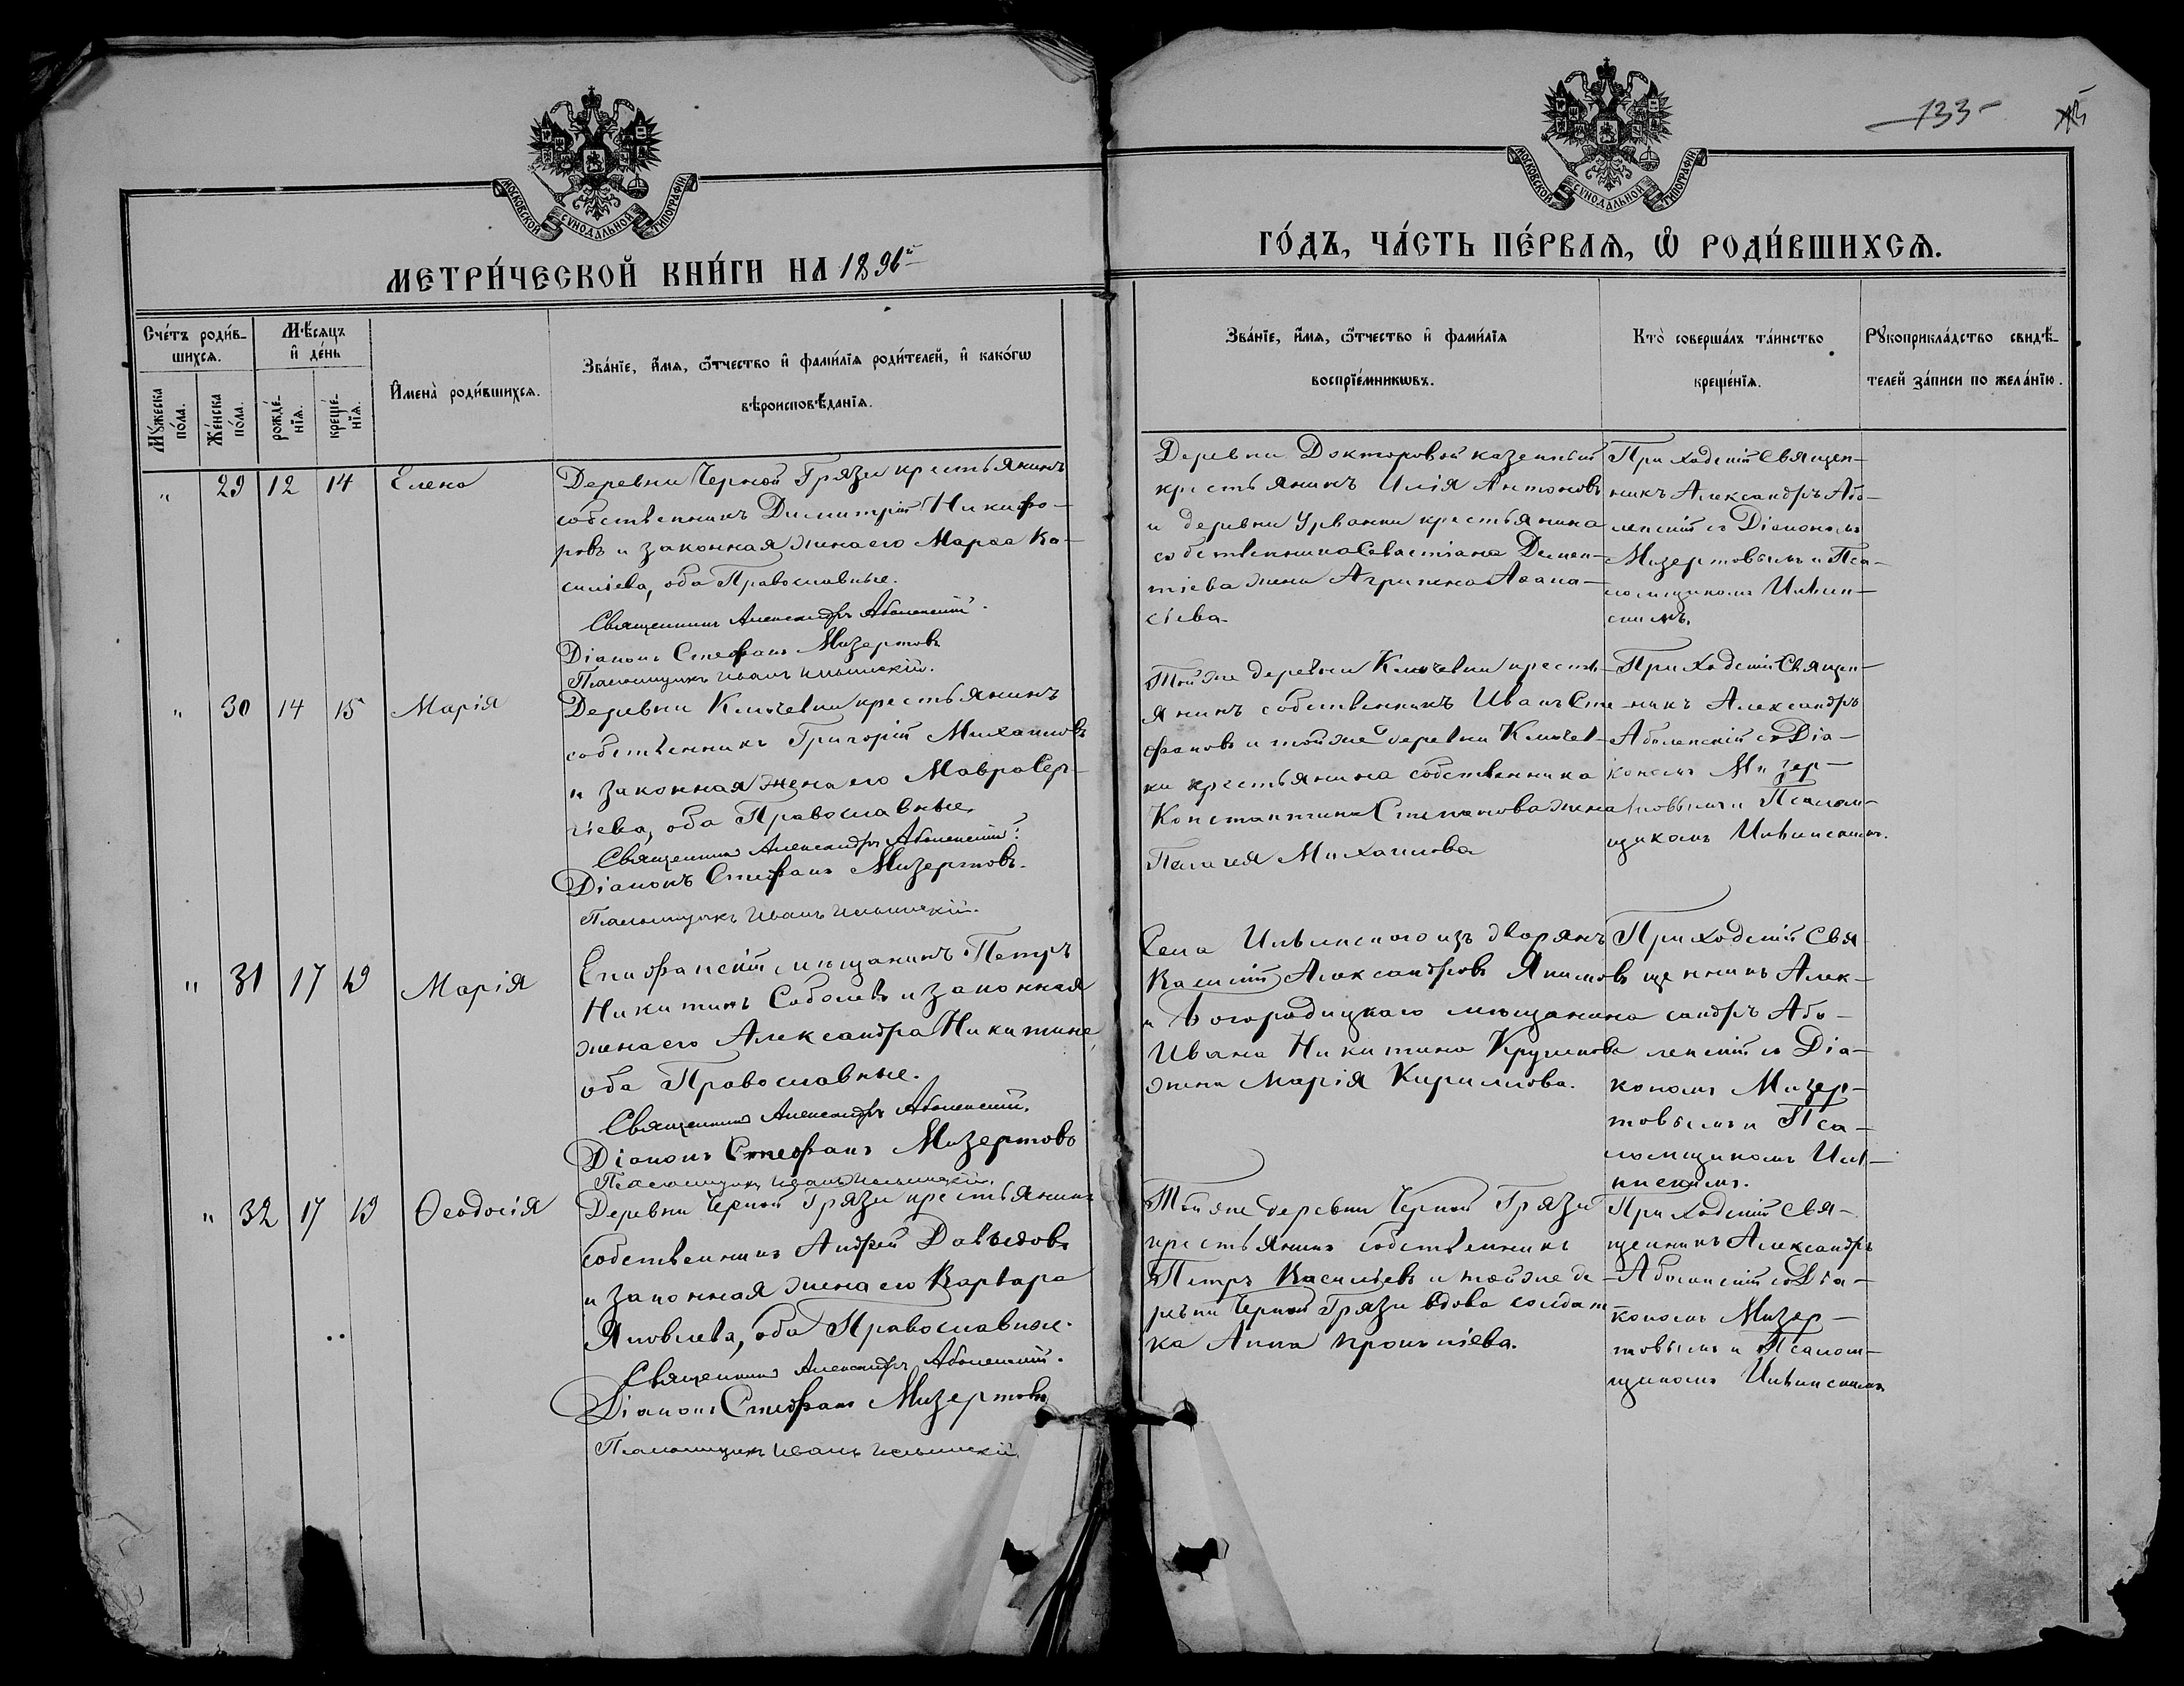 МОСКОВСКОЙ СУНОДАЛЬНОЙ ТИПОГРАФІИ
МЕТРИ́ЧЕСКОЙ КНИ́ГИ НА 1896й
Сче́тъ роди́в-
шихсѧ.
Мѣ́сѧцъ
и҆ де́нь
Мꙋ́жеска
по́ла.
Же́нска
по́ла.
рожде́-
нїѧ.
креще́-
нїѧ.
И҆мена̀ роди́вшихсѧ.
Зва́нїе, и҆́мѧ, ѻ҆́тчество и҆ фами́лїѧ роди́телей, и҆ како́гѡ
вѣроисповѣ́данїѧ.
" 29 12 14 Елена
Деревни Черной Грязи крестьянинъ
собственникъ Димитрій Никифо-
ровъ и законная жена его Марѳа Ва-
силіева, оба Православные.
Священникъ Александръ Аболенскій.
Діаконъ Стефанъ Мизертовъ
Псаломщикъ Иванъ Ильинскій.
" 30 14 15 Марія
Деревни Ключевки крестьянинъ
собственникъ Григорій Михаиловъ
и законная жена его Мавра Сер-
гіева, оба Православные.
Священникъ Александръ Аболенскій.
Діаконъ Стефанъ Мизертовъ.
Псаломщикъ Иванъ Ильинскій.
" 31 17 19 Марія
Епифанскій мѣщанинъ Петръ
Никитинъ Соболевъ и законная
жена его Александра Никитина,
оба Православные.
Священникъ Александръ Аболенскій.
Діаконъ Стефанъ Мизертовъ
Псаломщикъ Иванъ Ильинскій.
" 32 17 19 Ѳеодосія
Деревни Черной Грязи крестьянинъ
собственникъ Андрей Давыдовъ
и законная жена его Варвара
Яковлева, оба Православные.
Священникъ Александръ Аболенскій.
Діаконъ Стефанъ Мизертовъ
Псаломщикъ Иванъ Ильинскій.
133
МОСКОВСКОЙ СУНОДАЛЬНОЙ ТИПОГРАФІИ
ГО́ДЪ, ЧА́СТЬ ПЕ́РВАѦ, Ѡ҆ РОДИ́ВШИХСѦ.
Зва́нїе, и҆́мѧ, ѻ҆́тчество и҆ фами́лїѧ
воспрїе́мникѡвъ.
Кто̀ соверша́лъ та́инство
креще́нїѧ.
Рꙋкоприкла́дство свидѣ́-
телей за́писи по жела́нїю.
Деревни Докторовой казенный
крестьянинъ Илія Антоновъ
и деревни Урванки крестьянина
собственника Севастіана Демен-
тіева жена Агрипена Аѳана-
сіева.
Приходскій Священ-
никъ Александръ Або-
ленскій съ Діакономъ
Мизертовымъ и Пса-
ломщикомъ Ильин-
скимъ.
Той же деревни Ключевки кресть-
янинъ собственникъ Иванъ Сте-
фановъ и той же деревни Ключев-
ки крестьянина собственника
Константина Степанова жена
Пелагея Михаилова
Приходскій Священ-
никъ Александръ
Аболенскій съ Діа-
кономъ Мизер-
товымъ и Псалом-
щикомъ Ильинскимъ.
Села Ильинскаго изъ дворянъ
Василій Александровъ Якимовъ
и Богородицкаго мѣщанина
Ивана Никитина
жена Марія Кириллова.
Приходскій Свя-
щенникъ Алек-
сандръ Або-
ленскій съ Діа-
кономъ Мизер-
товымъ и Пса-
ломщикомъ Иль-
инскимъ.
Той же деревни Черной Грязи
крестьянинъ собственникъ
Петръ Васильевъ и той же де-
ревни Черной Грязи вдова солдат-
ка Анна
Приходскій Свя-
щенникъ Александръ
Аболенскій съ Діа-
кономъ Мизер-
товымъ и Псалом-
щикомъ Ильинскимъ